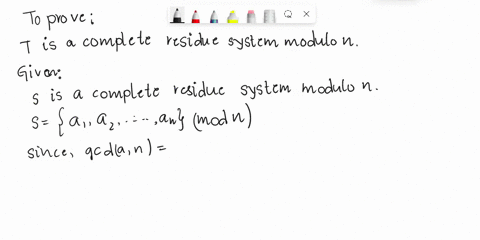 To prove:
T is a complete residue system modulo n.
Given:
s is a complete residue system modulo n.
S = {a₁, a₂, ..., aₙ} (mod n)
since, gcd(a, n) =